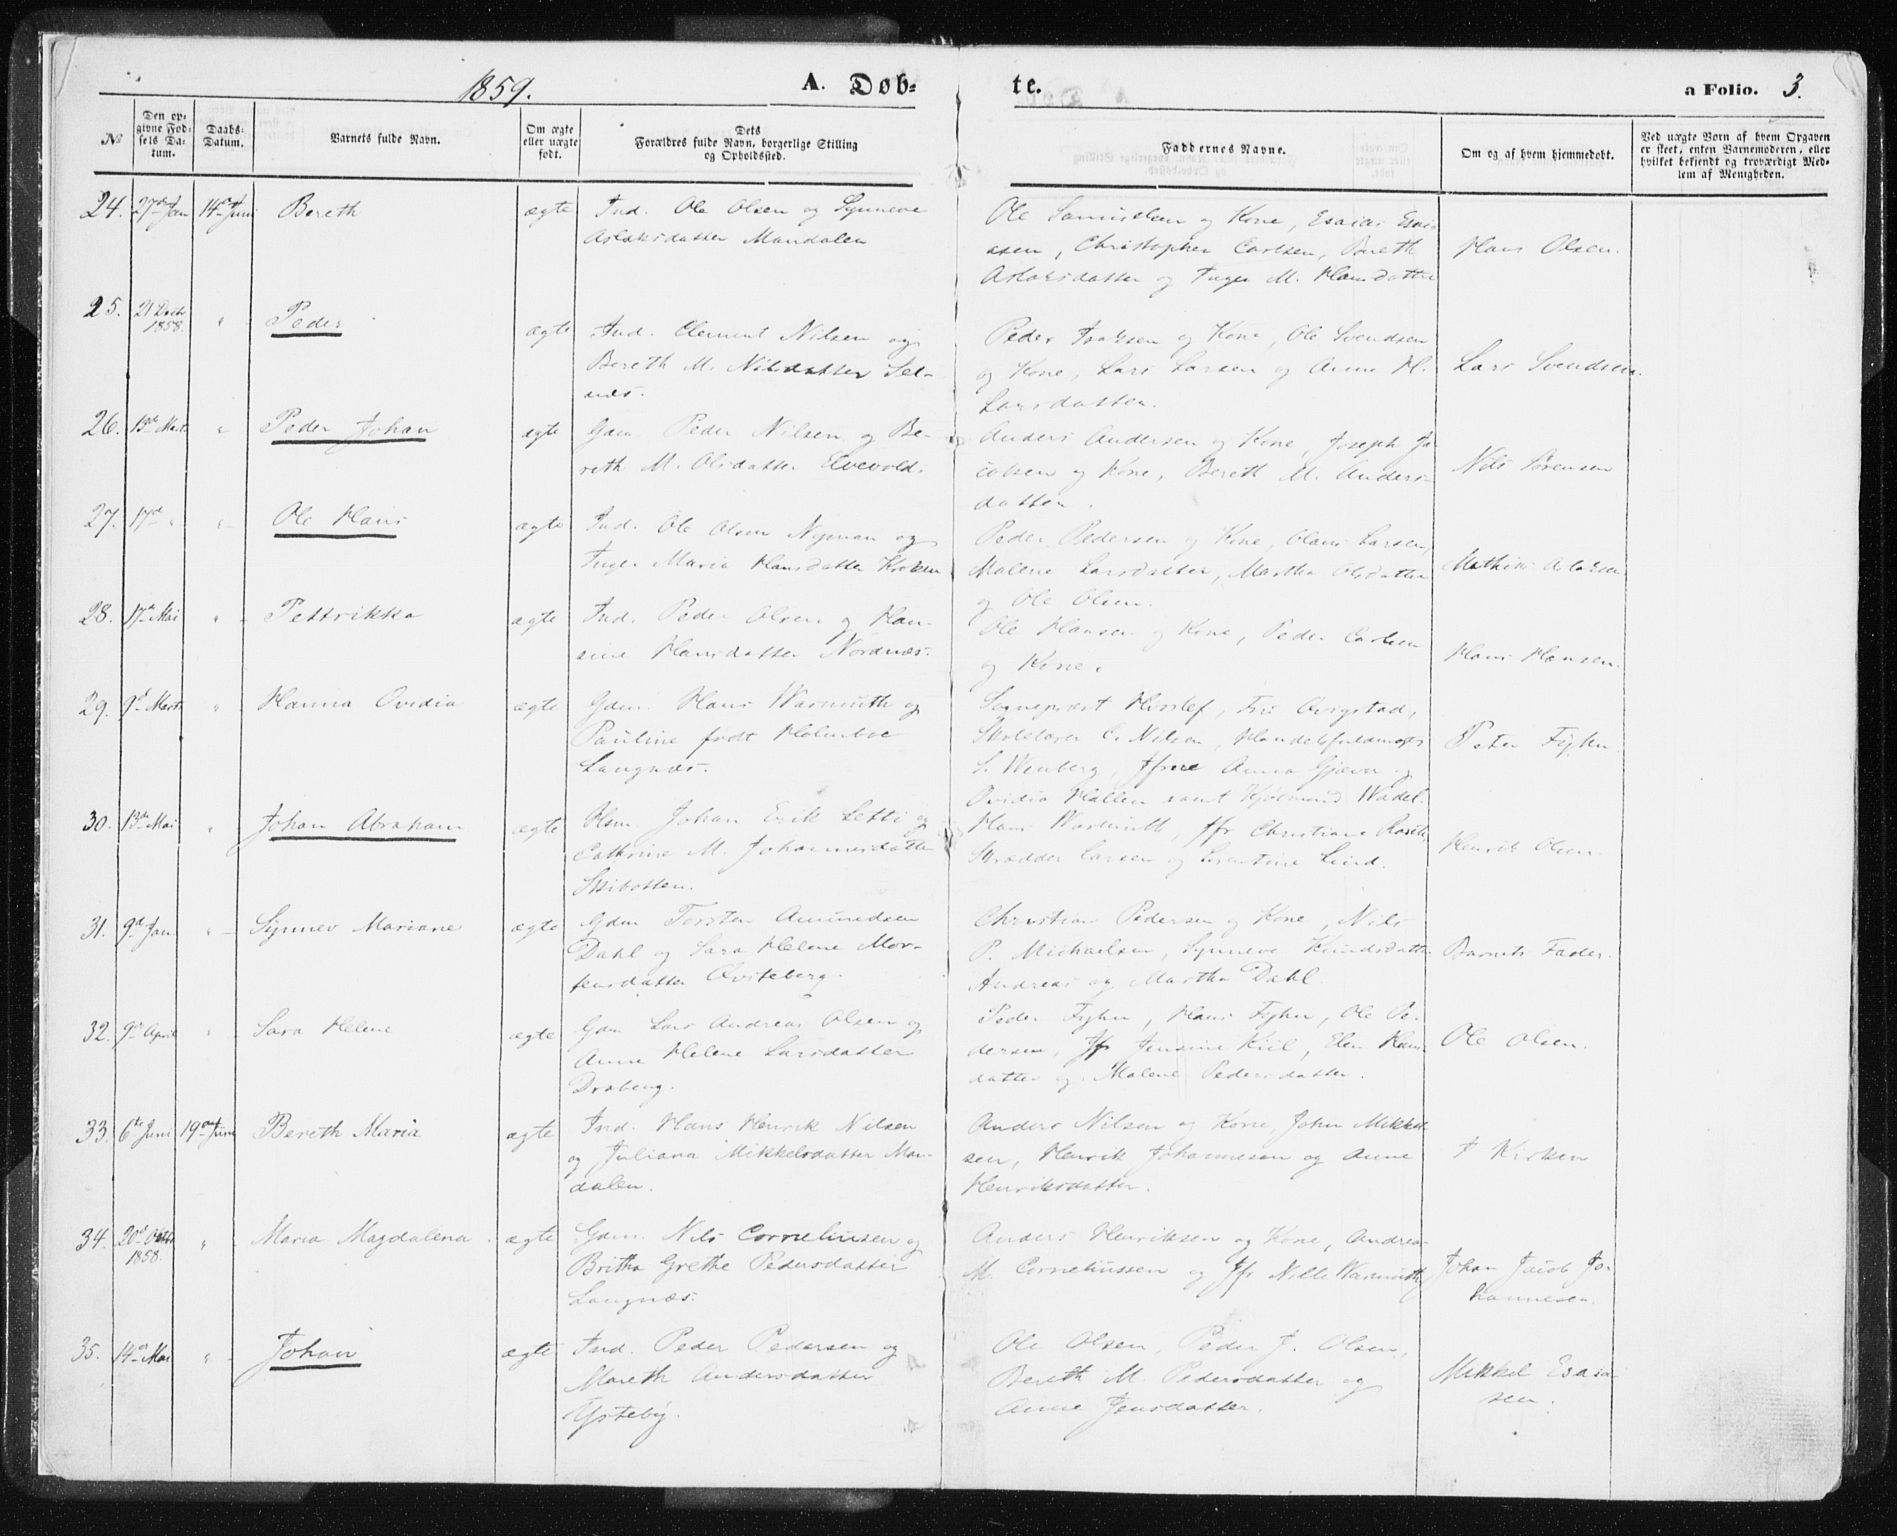 1859. A. Døb= te. a Folio. 3.
No
Den op=
givne Fød=
sels Da=
tum.
Daabs=
Datum.
Barnets fulde Navn.
Om ægte
eller uægte
født.
Dets
Forældres fulde Navn, borgerlige Stilling
og Opholdssted.
Faddernes Navne.
Om og af hvem hjemmedøbt.
Ved uægte Børn af hvem Opgaven
er skeet, enten Barnemoderen, eller
hvilket bekjendt og troværdigt Med=
lem af Menigheden.
24. 27de Jan 14de Juni Bereth ægte Ind. Ole Olsen og Synneve
Aslaksdatter Mandalen
Ole Samuelsen og Kone, Esaias Esai-
asen, Christopher Carlsen, Bereth
Aslaksdatter og Inger M. Hansdatter
Hans Olsen.
25. 21 Decbr
1858. " Peder ægte Ind. Clement Nilsen og
Bereth M. Nilsdatter Sel-
næs.
Peder Isaksen og Kone, Ole Svendsen
og Kone, Lars Larsen og Anne M.
Larsdatter.
Lars Svendsen.
26. 15de Marts " Peder Johan ægte Gdm. Peder Nilsen og Be-
reth M. Olsdatter Elvevold.
Anders Andersen og Kone, Joseph Ja-
cobsen og Kone, Bereth M. Anders-
datter.
Nils Sørensen
27. 17de " " Ole Hans ægte Ind. Ole Olsen Nyman og
Inger Maria Hansdatter Kroken
Peder Pedersen og Kone, Olaus Larsen,
Malene Larsdatter, Martha Olsdatter
og Ole Olsen.
Mathias Aslaksen
28. 17de Mai " Pettrikka ægte Ind. Peder Olsen og Han-
sine Hansdatter Nordnæs.
Ole Hansen og Kone, Peder Carlsen
og Kone.
Hans Hansen.
29. 9de Marts " Hanna Ovidia ægte Gdm. Hans Warmuth og
Pauline født Holmboe
Langnæs.
Sognepræst Hvoslef, Fru Qvigstad,
Skolelærer C. Nilsen, Handelsfuldmægt.
S. Wenberg, Jfrue Anna Gjæver og
Ovidia Hallen samt Hjølmund Wadel.
Peter Fyhn.
30. 13de Mai " Johan Abraham ægte Hsm. Johan Erik Letti og
Cathrine M. Johannesdatter
Skibotten.
Hans Warmuth, Jfr Christiane Rasch,
Skrædder Larsen og Lorentine Lund.
Henrik Olsen.
31. 9de Jan " Synnev Mariane ægte Gdm Torsten Amundsen
Dahl og Sara Helene Mor-
tensdatter Qviteberg.
Christian Pedersen og Kone, Nils
P. Michaelsen, Synneve Knudsdatter
Andreas og Martha Dahl.
Barnets Fader.
32. 9de April " Sara Helene ægte Gdm Lars Andreas Olsen og
Anne Helene Larsdatter
Draberg.
Peder Fyhn, Hans Fyhn, Ole Pe-
dersen, Jfr Jensine Kiil, Elen Hans-
datter og Malene Pedersdatter.
Ole Olsen.
33. 6te Juni 19de Juni Bereth Maria ægte Ind. Hans Henrik Nilsen
og Juliana Mikkelsdatter Man-
dalen.
Anders Nilsen og Kone, John Mikkel-
sen, Henrik Johannesen og Anne
Henriksdatter.
I Kirken
34. 20de Octbr
1858. " Maria Magdalena ægte Gdm. Nils Corneliussen og
Britha Grethe Pedersdatter
Langnæs.
Anders Henriksen og Kone, Andreas
M. Corneliussen og Jfr Nille Warmuth,
Johan Jacob Jo-
hannesen.
35. 14de Mai " Johan ægte Ind. Peder Pedersen og
Mareth Andersdatter
Ysteby.
Ole Olsen, Peder J. Olsen,
Bereth M. Pedersdatter og
Anne Jensdatter.
Mikkel Esaia-
sen.